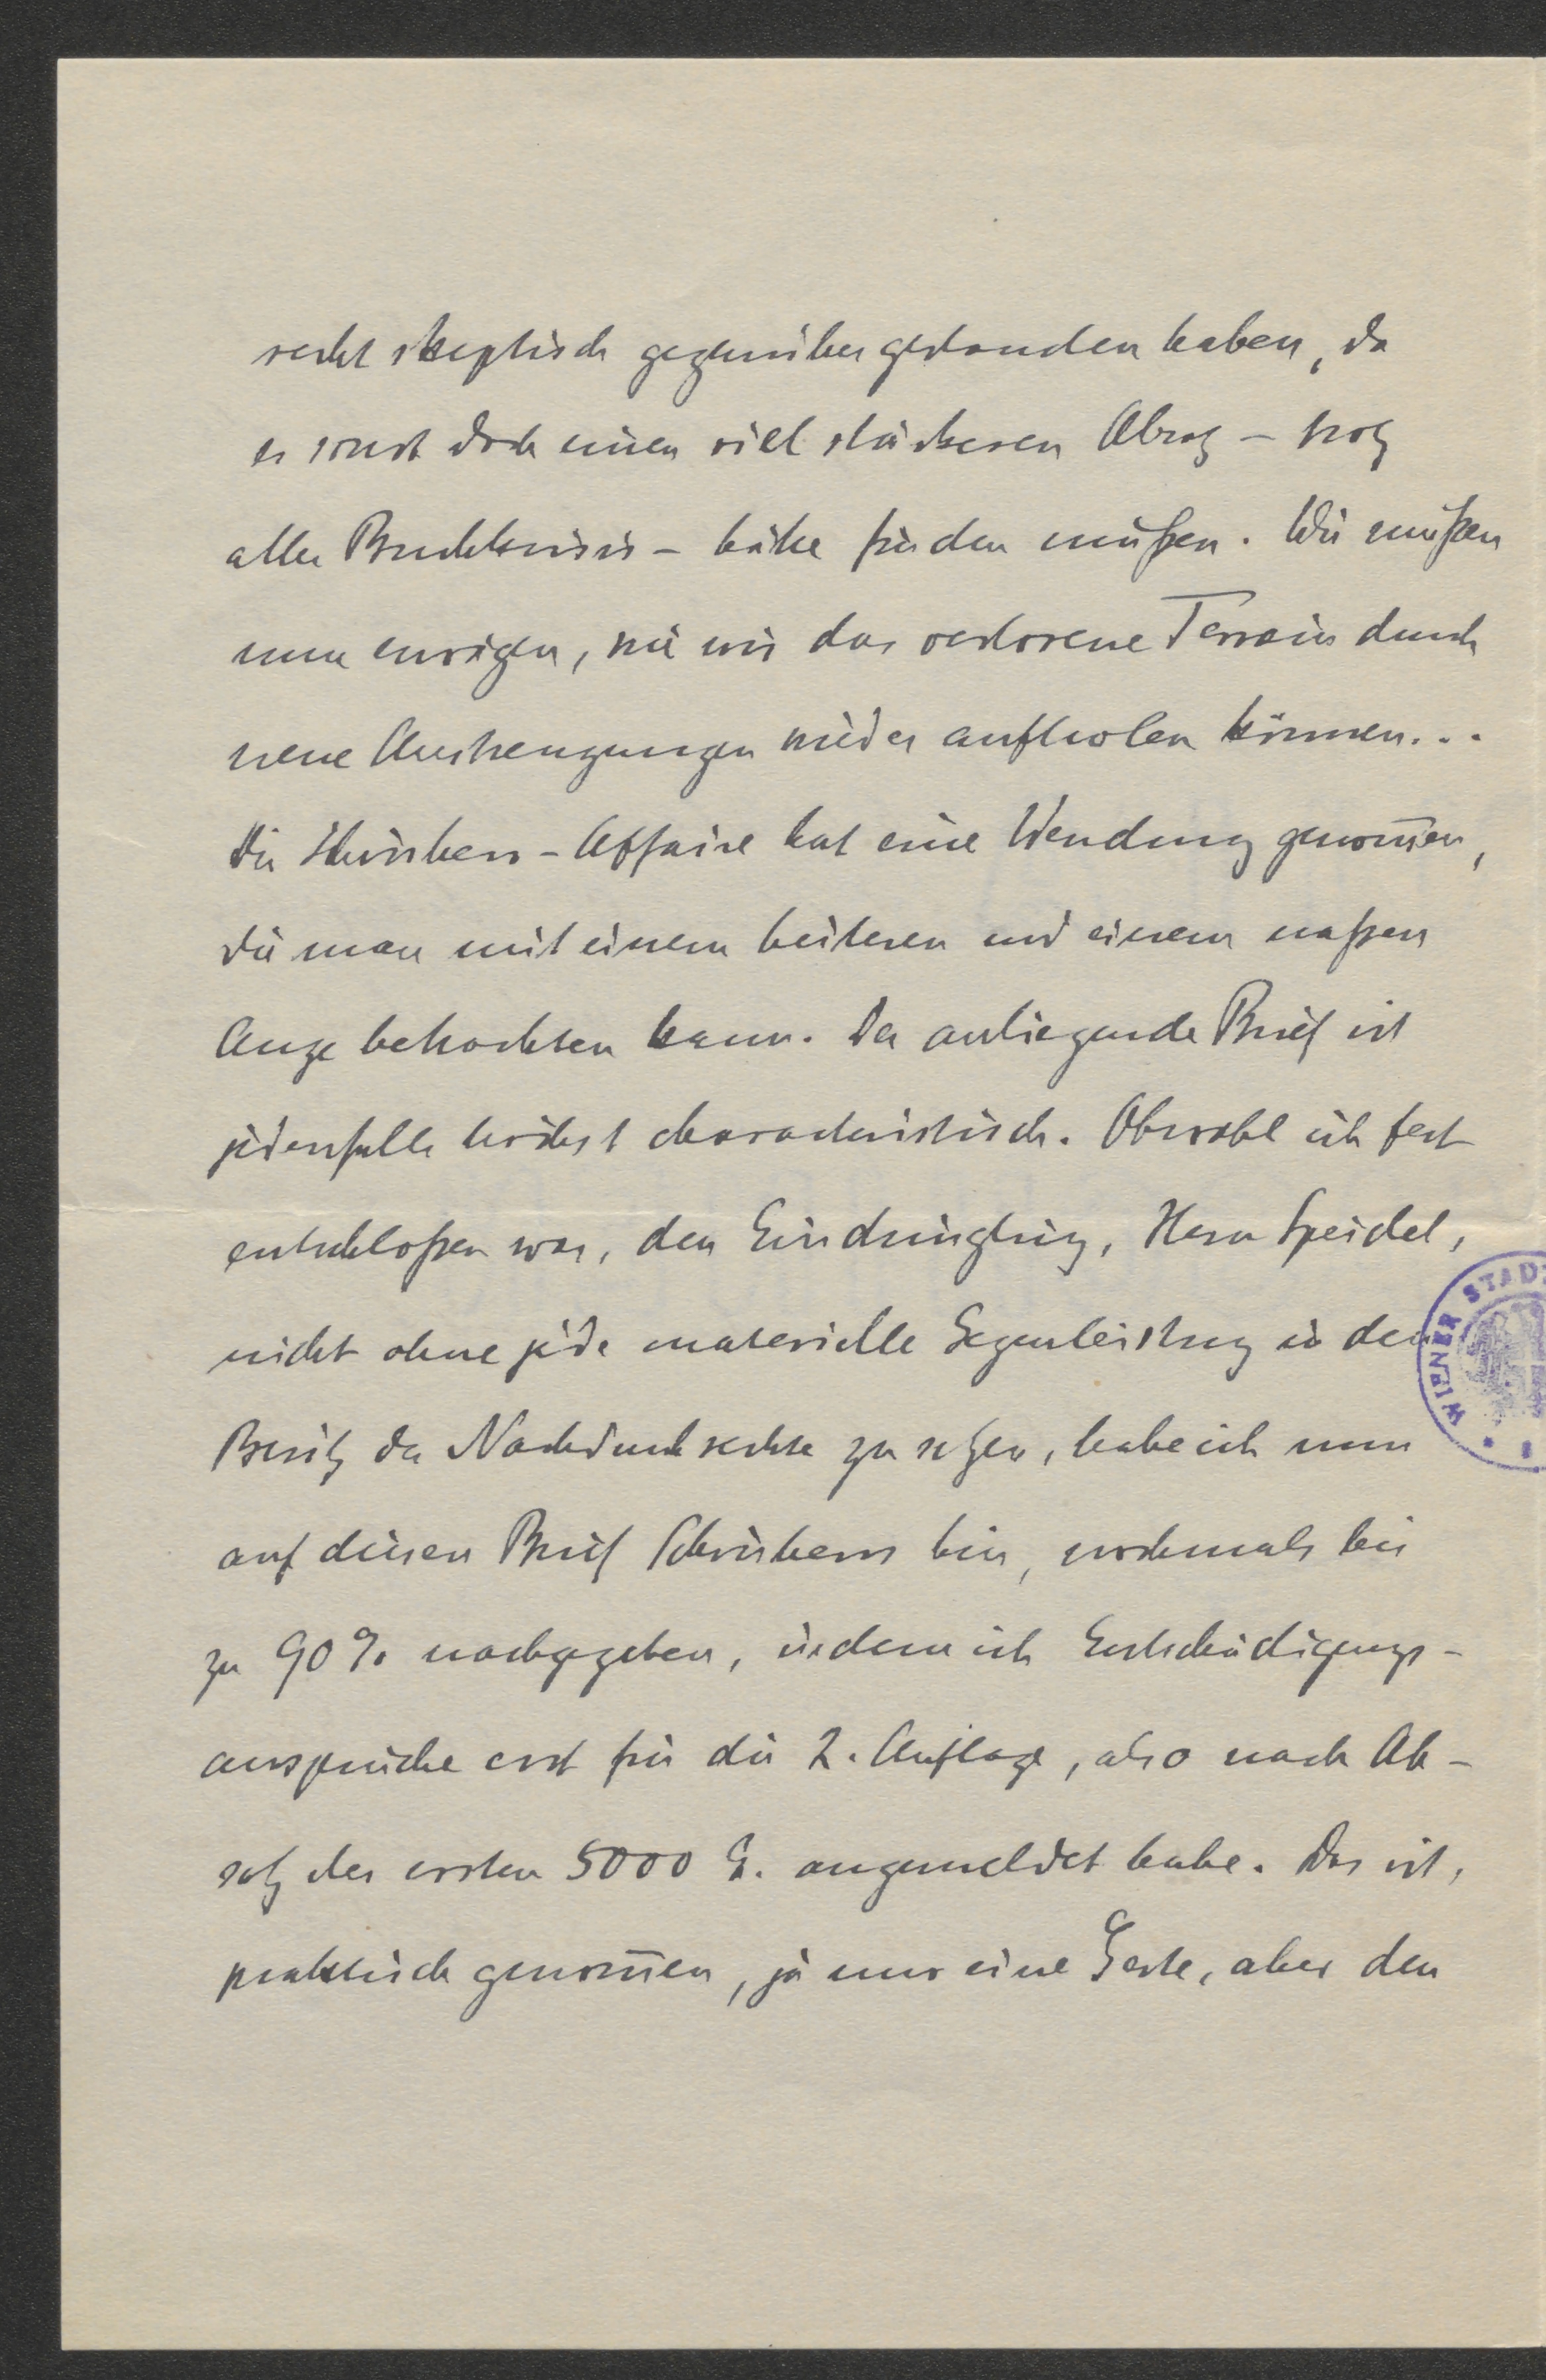 recht skeptisch gegenübergestanden haben, da
er sonst doch einen viel stärkeren Absatz – trotz
aller Buchkrisis – hätte finden müßen. Wir müßen
nun erwägen, wie wir das verlorene Terrain durch
neue Anstrengungen wieder aufholen können...
Die Schwiskers-Affaire hat eine Wendung genom̅en,
die man mit einem heiteren und einem naßen
Auge betrachten kann. Der anliegende Brief ist
jedenfalls höchst characteristisch. Obwohl ich fest
entschloßen war, den Eindringling, Herrn Speidel,
nicht ohne jede materielle Gegenleistung in den
Besitz der Nachdruckrechte zu setzen, habe ich nun
auf diesen Brief hin, nochmals bis
zu 90% nachgegeben, indem ich Entschädigungs-
ansprüche erst für die 2. Auflage, also nach Ab-
satz der ersten 5000 E. angemeldet habe. Das ist,
praktisch genom̅en, ja nur eine Geste, aber den
WIENER STAD